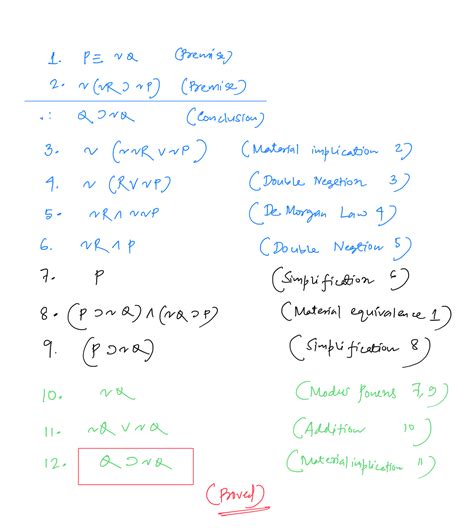 1. P ≡ ~Q (Premise)
2. ~(~R ⊃ ~P) (Premise)
∴ Q ⊃ ~Q (Conclusion)
3. ~ (~~R ∨ ~P) (Material implication 2)
4. ~ (R ∨ ~P) (Double Negetion 3)
5. ~R ∧ ~~P (De Morgan Law 4)
6. ~R ∧ P (Double Negtion 5)
7. P (Simplification 6)
8. (P ⊃ ~Q) ∧ (~Q ⊃ P) (Material equivalence 1)
9. (P ⊃ ~Q) (Simplification 8)
10. ~Q (Modus Ponens 7,9)
11. ~Q ∨ ~Q (Addition 10)
12. Q ⊃ ~Q (Material implication 11)
(Proved)